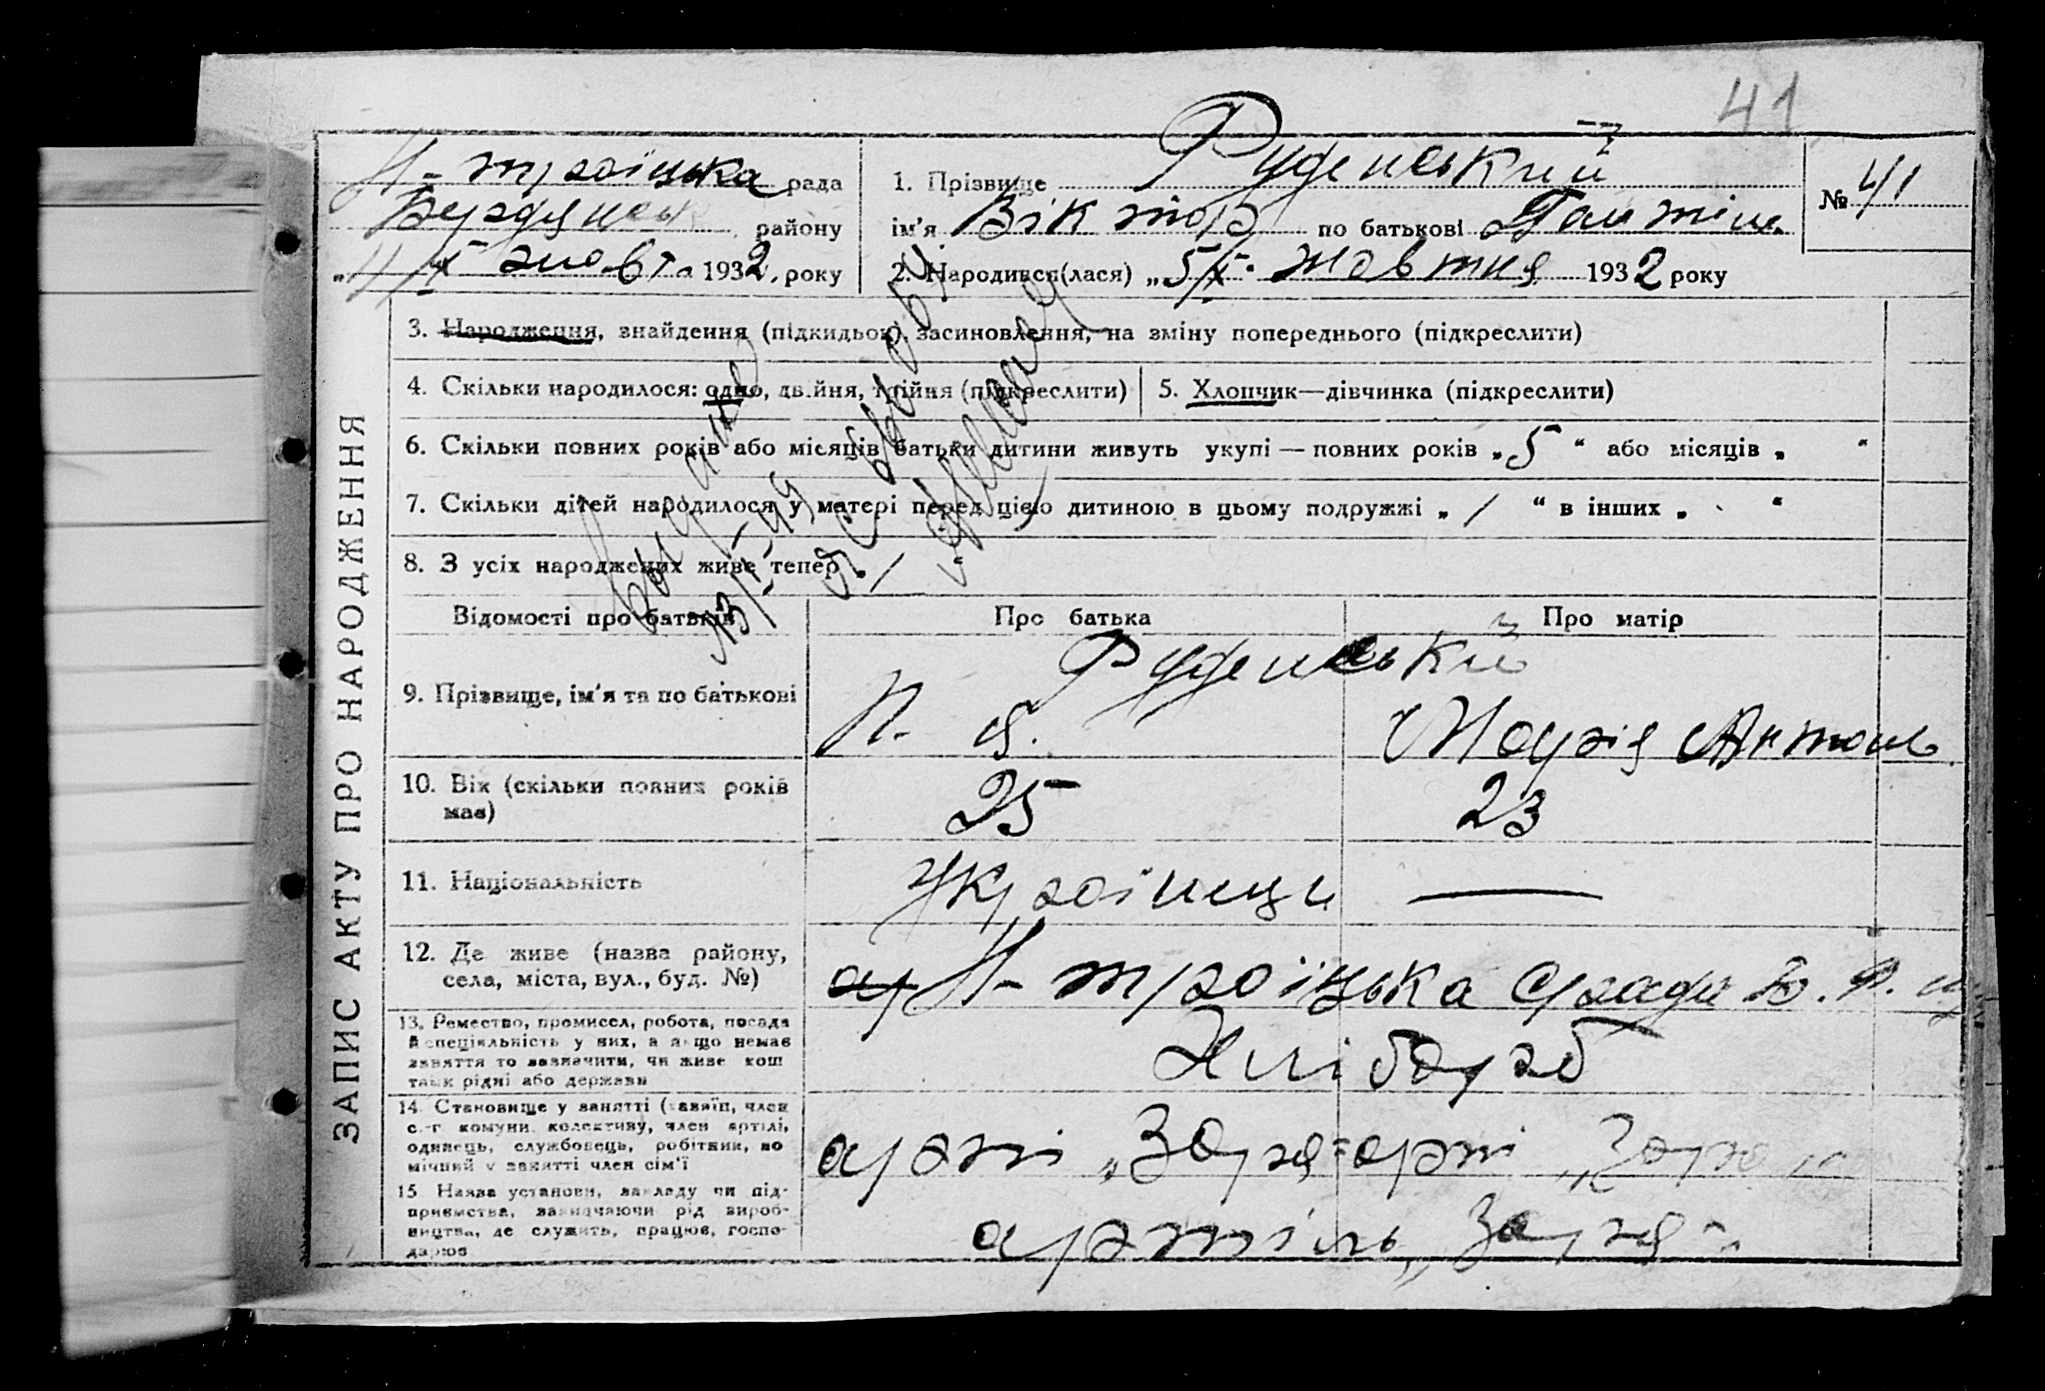 41
Н-троїцька рада
Бердянськ району
„4/X" жовт. 1932, року
1. Прізвище Руденський
ім'я Віктор по батькові
2. Народився(лася) „5/X" жовтня 1932 року
№ 41
ЗАПИС АКТУ ПРО НАРОДЖЕННЯ
3. Народження, знайдення (підкидьок), засиновлення, на зміну попереднього (підкреслити)
4. Скільки народилося: одно, двійня, трійня (підкреслити)
5. Хлопчик—дівчинка (підкреслити)
6. Скільки повних років або місяців батьки дитини живуть укупі — повних років „5" або місяців „ "
7. Скільки дітей народилося у матері перед цією дитиною в цьому подружжі „1" в інших „ "
8. З усіх народжених живе тепер „1"
Відомості про батьків
Про батька
Про матір
9. Прізвище, ім'я та по батькові
Руденський
П. Я.
Марія Антонів
10. Вік (скільки повних років
має)
25
23
11. Національність
Українець
—
12. Де живе (назва району,
села, міста, вул., буд. №)
Н-троїцька с/рада Б. Р.
13. Ремество, промисел, робота, посада
й спеціяльність у них, а якщо немає
заняття то зазначити, чи живе кош
том рідні або держави
Хлібороб
14. Становище у занятті (хазяїн, член
с.-г. комуни, колективу, член артілі,
одинець, службовець, робітник, по
мічний у занятті член сім'ї
арті „Заря" арті „Заря"
15. Назва установи, закладу чи під-
приємства, зазначаючи рід вироб-
ництва, де служить, працює, госпо-
дарює
артіль „Заря"